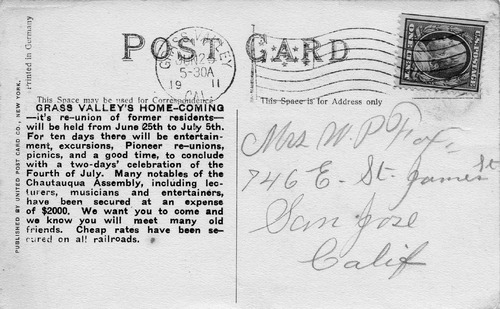 POST CARD
GRASS VALLEY
JUN 23
5-30A
19 11
CAL.
Printed in Germany
PUBLISHED BY UNITED POST CARD CO., NEW YORK.
This Space may be used for Correspondence
GRASS VALLEY'S HOME-COMING
—it's re-union of former residents—
will be held from June 25th to July 5th.
For ten days there will be entertain-
ment, excursions, Pioneer re-unions,
picnics, and a good time, to conclude
with a two-days' celebration of the
Fourth of July. Many notables of the
Chautauqua Assembly, including lec-
turers, musicians and entertainers,
have been secured at an expense
of $2000. We want you to come and
we know you will meet many old
friends. Cheap rates have been se-
cured on all railroads.
This Space is for Address only
Mrs W. P.
746 E. St. James St
San Jose
Calif